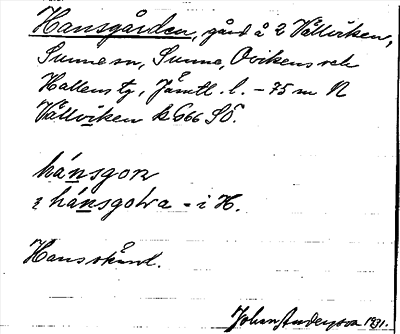 Hansgården, gård å 2 Vällviken,
Sunne sn, Sunne, Ovikens och
Hallens tg, Jämtl. l. – 75 m N
Vällviken k 666 SÖ.
hánsgoɳ
hánsgoɽa - i H.
Hans skånl.
Johan Anderson 1931.